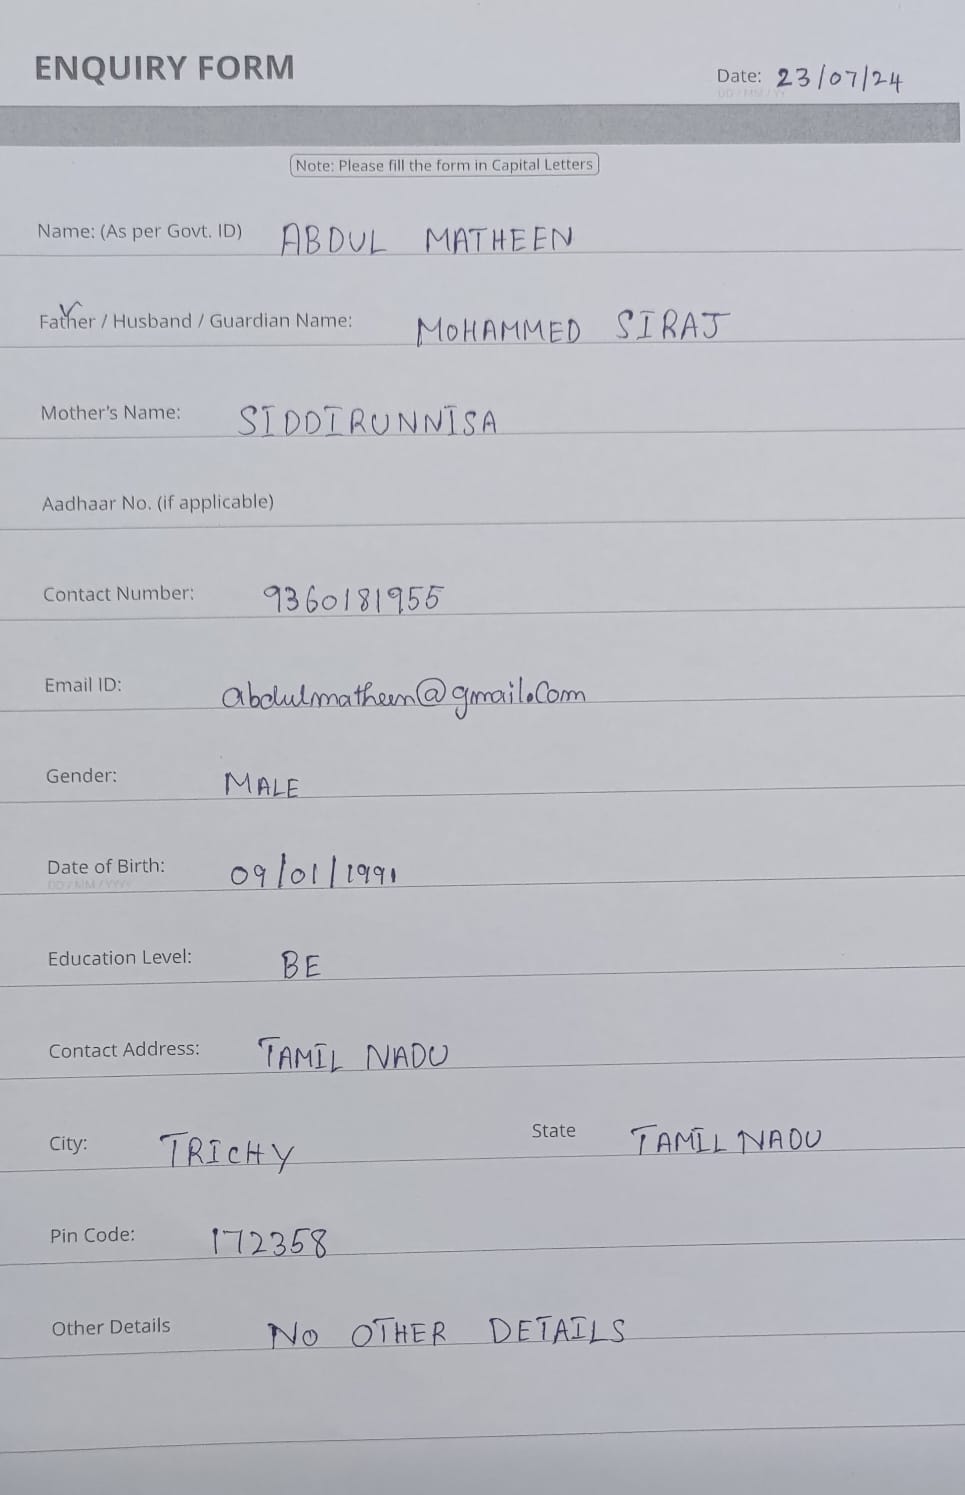 ENQUIRY FORM
Date: 23/07/24
DD / MM / YY
Note: Please fill the form in Capital Letters
Name: (As per Govt. ID) ABDUL MATHEEN
Father / Husband / Guardian Name: MOHAMMED SIRAJ
Mother's Name: SIDDIRUNNISA
Aadhaar No. (if applicable)
Contact Number: 9360181955
Email ID: abdulmatheen@gmail.Com
Gender: MALE
Date of Birth: 09/01/1991
DD / MM / YYYY
Education Level: BE
Contact Address: TAMIL NADU
City: TRICHY State TAMIL NADU
Pin Code: 172358
Other Details NO OTHER DETAILS